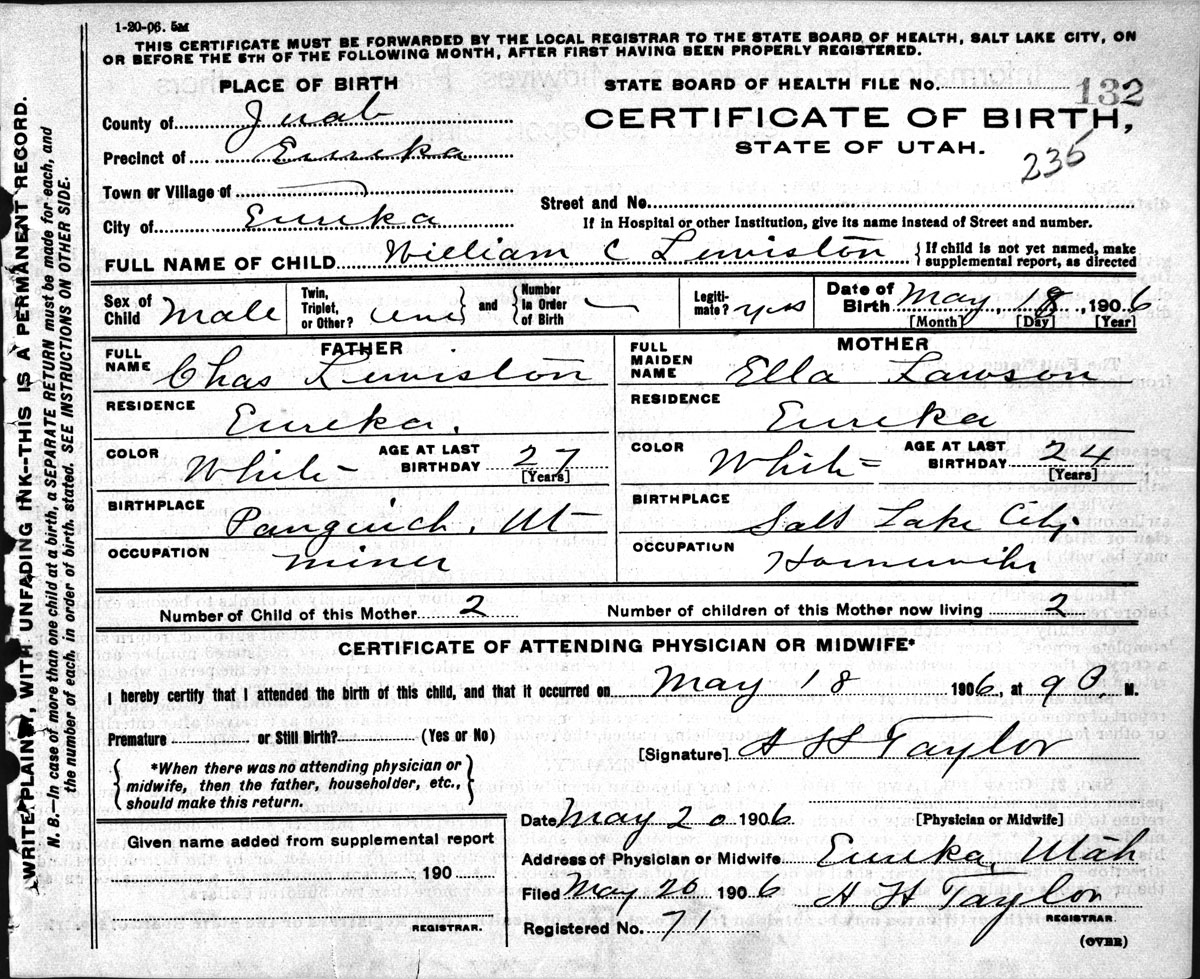 1-20-06. 5M
THIS CERTIFICATE MUST BE FORWARDED BY THE LOCAL REGISTRAR TO THE STATE BOARD OF HEALTH, SALT LAKE CITY, ON
OR BEFORE THE 5TH OF THE FOLLOWING MONTH, AFTER FIRST HAVING BEEN PROPERLY REGISTERED.
PLACE OF BIRTH
STATE BOARD OF HEALTH FILE NO. 132
County of Juab
CERTIFICATE OF BIRTH,
Precinct of Eureka
STATE OF UTAH.
235
Town or Village of
Street and No.
City of Eureka
If in Hospital or other Institution, give its name instead of Street and number.
FULL NAME OF CHILD William C Lewiston { If child is not yet named, make
supplemental report, as directed
Sex of Child Male Twin, Triplet, or Other? one } and { Number in Order of Birth – Legitimate? yes Date of Birth May, 18, 1906
[Month] [Day] [Year]
FATHER
MOTHER
FULL NAME Chas Lewiston
FULL MAIDEN NAME Ella Lawson
RESIDENCE Eureka.
RESIDENCE Eureka
COLOR White AGE AT LAST BIRTHDAY 27 [Years]
COLOR White AGE AT LAST BIRTHDAY 24 [Years]
BIRTHPLACE Panguich, Ut
BIRTHPLACE Salt Lake City
OCCUPATION Miner
OCCUPATION Housewife
Number of Child of this Mother 2 Number of children of this Mother now living 2
CERTIFICATE OF ATTENDING PHYSICIAN OR MIDWIFE*
I hereby certify that I attended the birth of this child, and that it occurred on May 18 1906, at 9 P. M.
Premature or Still Birth? (Yes or No)
[Signature] A H Taylor
{ *When there was no attending physician or
midwife, then the father, householder, etc.,
should make this return. }
Date May 20 1906 [Physician or Midwife]
Given name added from supplemental report
Address of Physician or Midwife Eureka, Utah
190
Filed May 20 1906 A H Taylor
REGISTRAR.
REGISTRAR.
Registered No. 71
(OVER)
WRITE PLAINLY, WITH UNFADING INK—THIS IS A PERMANENT RECORD.
N. B.—In case of more than one child at a birth, a SEPARATE RETURN must be made for each, and
the number of each, in order of birth, stated. SEE INSTRUCTIONS ON OTHER SIDE.